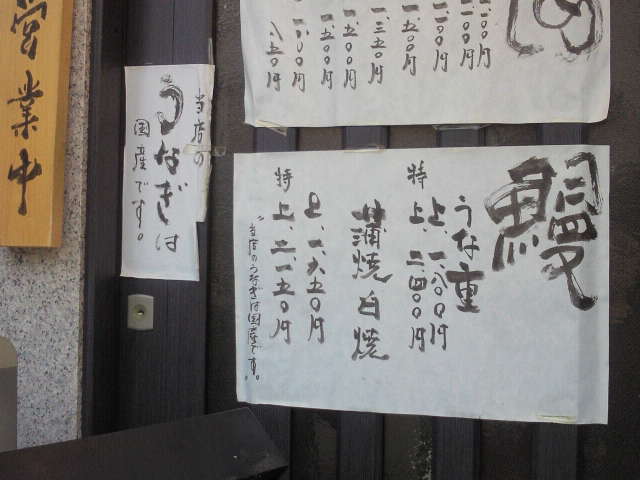 営業中
当店の
うなぎは
国産です。
め
一〇〇円
一〇〇円
一、一〇〇円
一、五〇〇円
一、三五〇円
一、五〇〇円
一、五〇〇円
一、〇〇〇円
八五〇円
鰻
うな重
上、一、八〇〇円
特上、二、四〇〇円
蒲焼 白焼
上、一、六五〇円
特上、二、一五〇円
"当店のうなぎは国産です。"